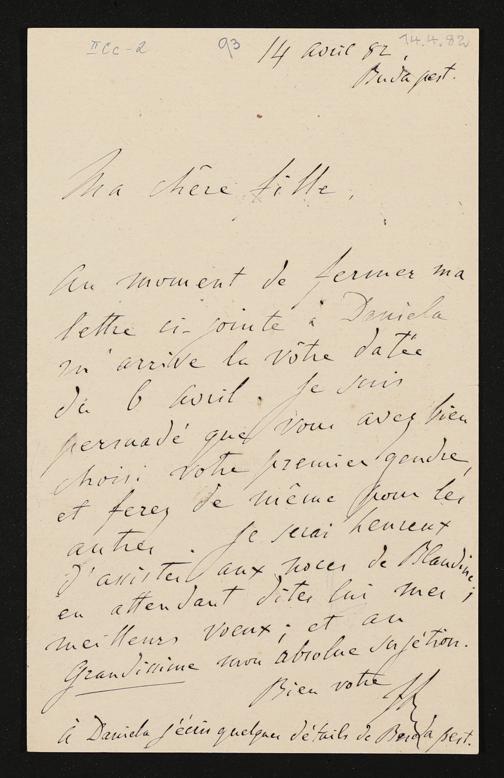 II Cc-2 93 14 avril 82, 14.4.82
Budapest.
Ma chère fille,
Au moment de fermer ma
lettre ci-jointe à Daniela
m'arrive la vôtre datée
du 6 avril. Je suis
persuadé que vous avez bien
choisi votre premier gendre,
et ferez de même pour les
autres. Je serai heureux
d'assister aux noces de Blandine;
en attendant dites lui mes
meilleurs voeux; et au
Grandissime mon absolue sujétion.
Bien votre
à Daniela j'écris quelques détails de Budapest.